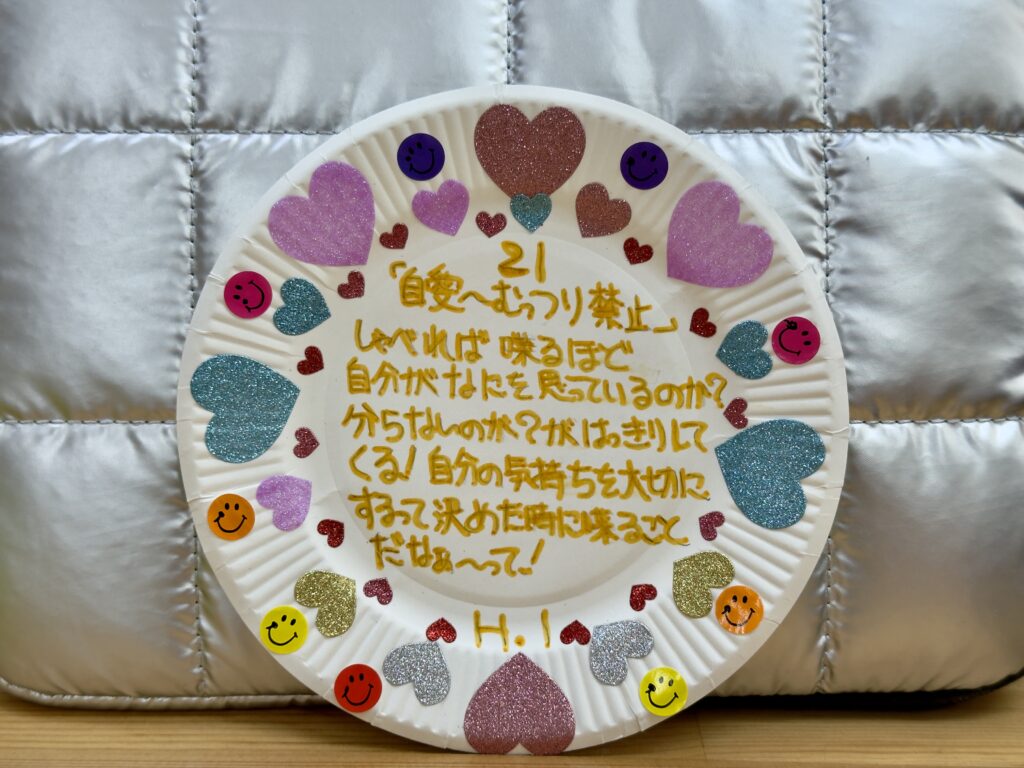 21
「自愛〜むっつり禁止」
しゃべれば喋るほど
自分がなにを思っているのか?
分らないのか?がはっきりして
くる!自分の気持ちを大切に
するって決めた時に喋ること
だなぁ〜って!
H.I